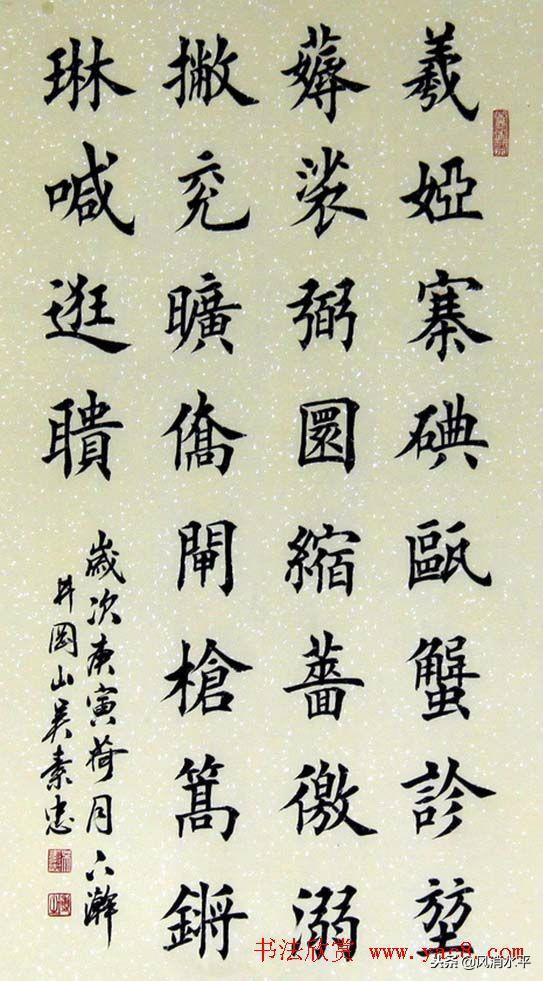 羲婭寨碘甌蟹診堃
薅裟弼圜縮薔徼溺
撇兖曠僑閘槍篙鏘
琳喊逛聵
歲次庚寅荷月下澣
井岡山吳素忠
书法欣赏 www.yac8.com
头条 @风消水平